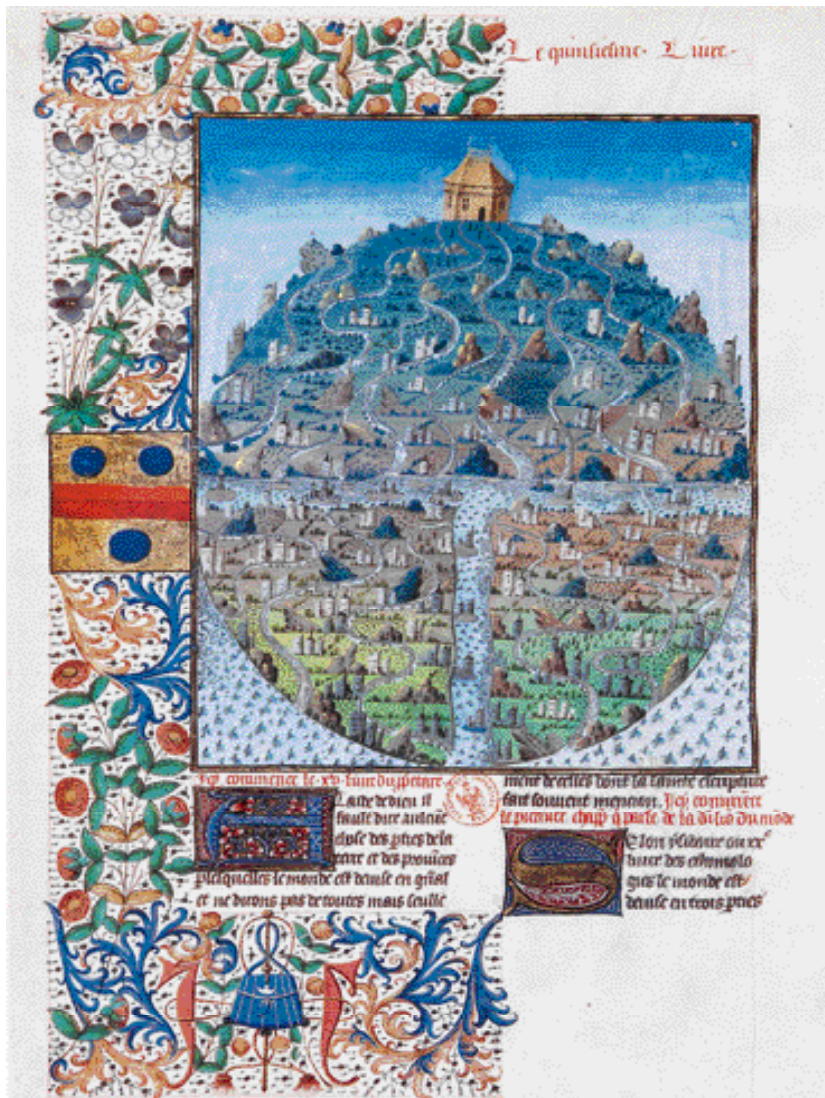 Le quinsiesme. Livre.
Icy commence le .xv. livre du
A laide de dieu il
fault dire aulcune
chose des pties de la
terre et des provices
p lesquelles le monde est devise en gñal
et ne dirons pas de toutes mais seulle
ment de celles dont la sainte escripture
fait souvent mencion. Icy commence
le premier chap q parle de la du monde
Selon ysidoire ou xve
livre des ethimolo
gies le monde est
devise en trois pties